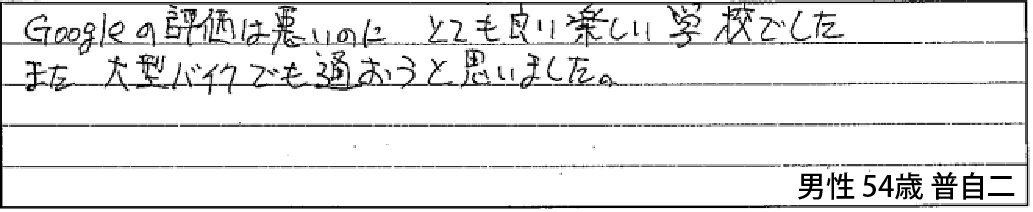 Googleの評価は悪いのに とても良い楽しい学校でした
また 大型バイクでも通おうと思いました。
男性 54歳 普自二